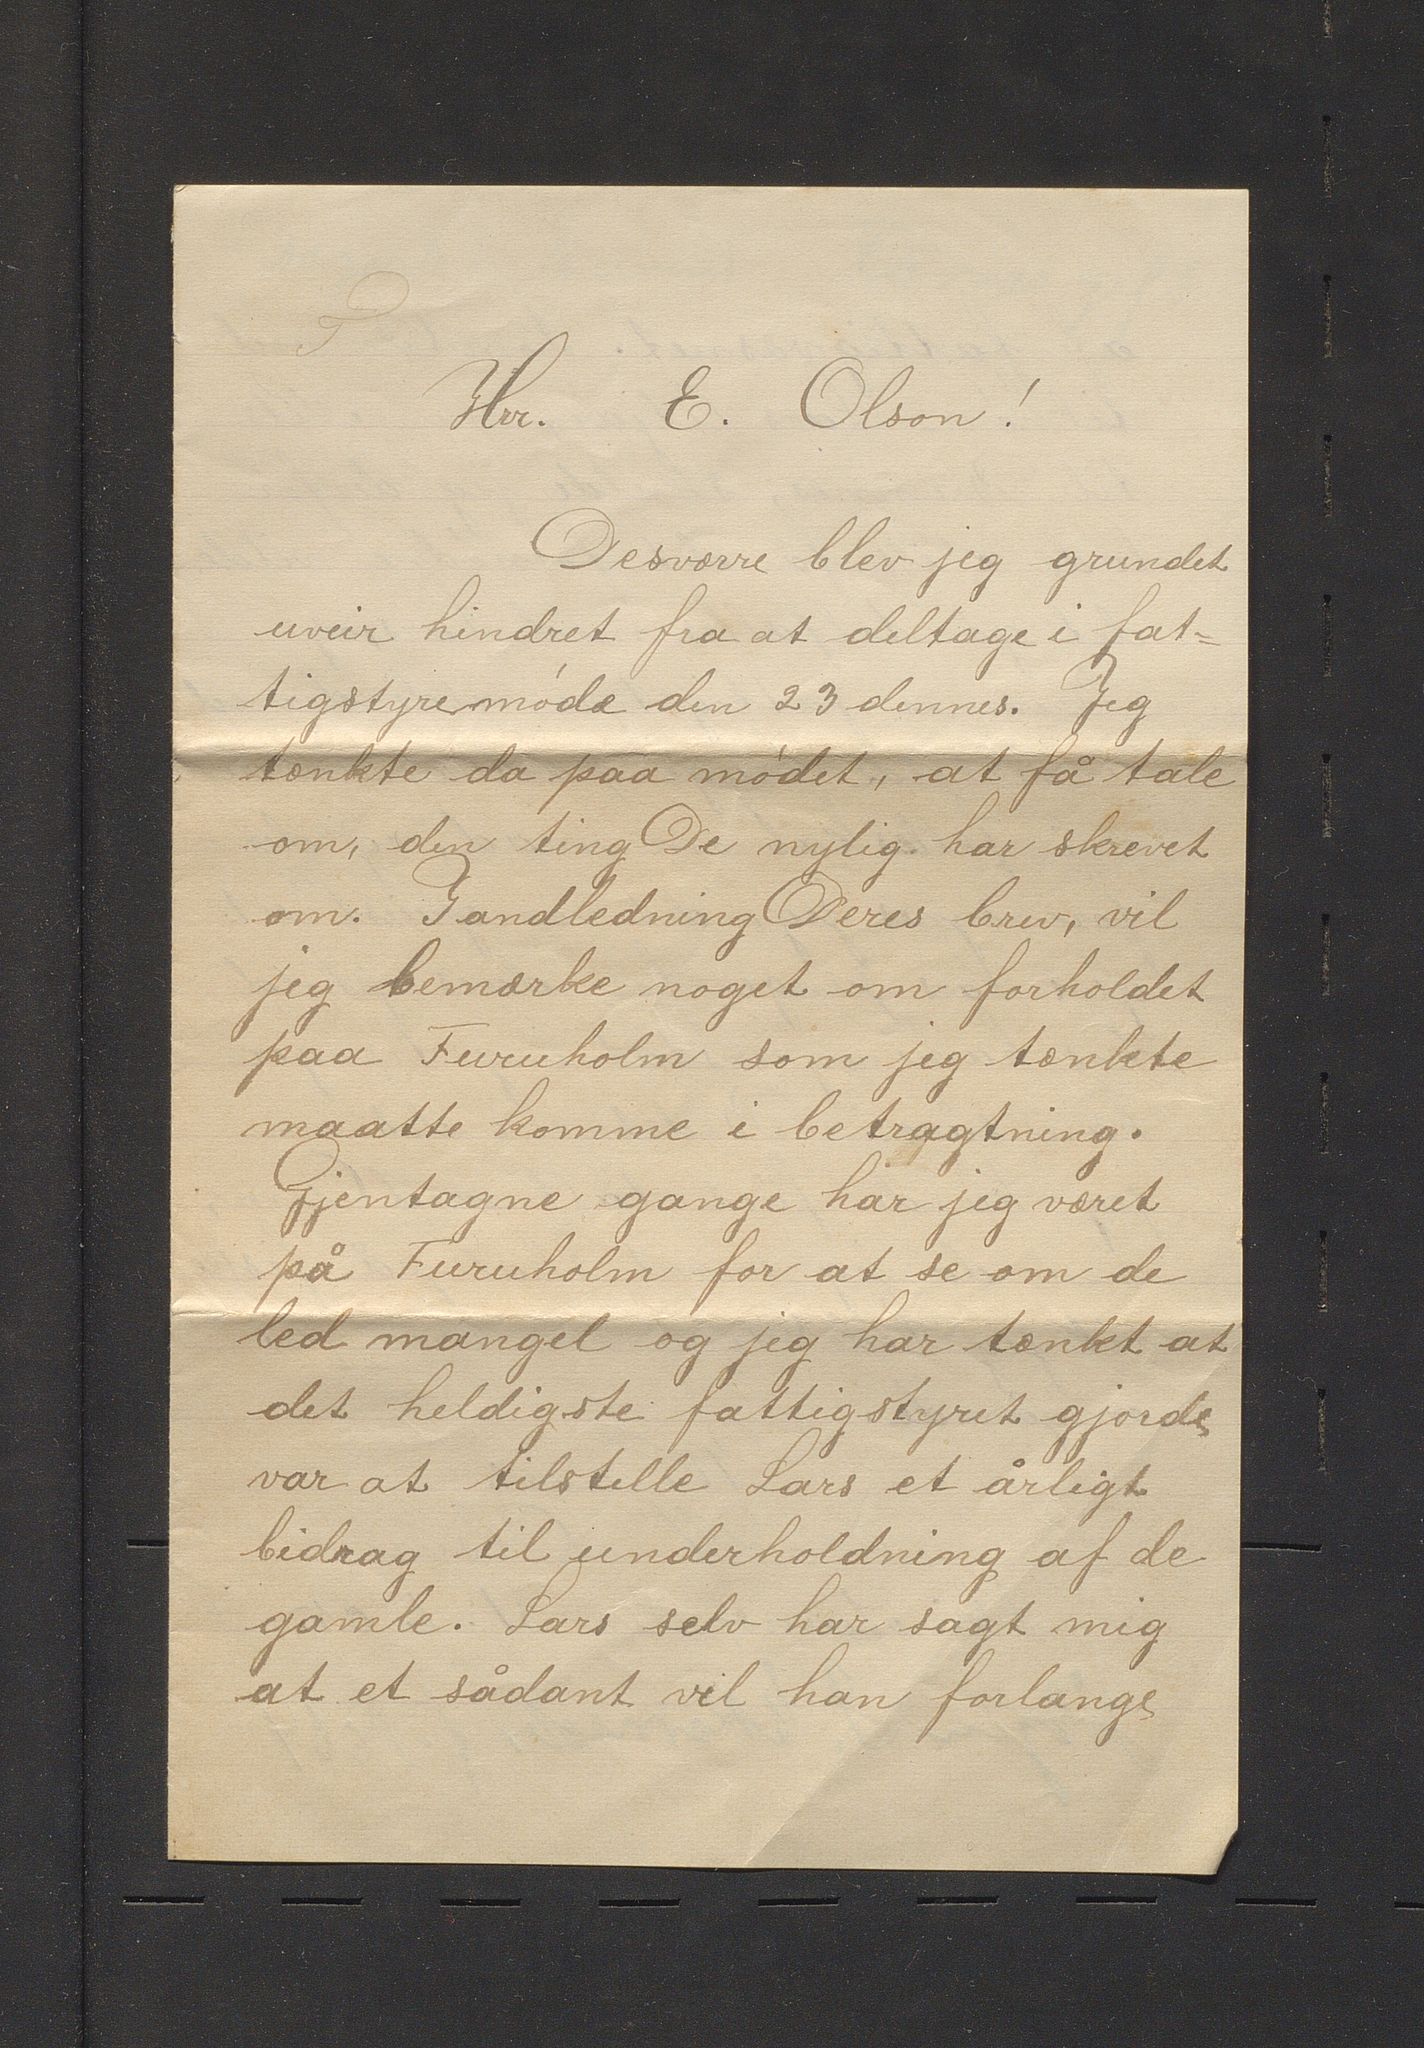 Hrr. E. Olson!
Desværre blev jeg grundet
uveir hindret fra at deltage i fat-
tigstyremóde den 23 dennes. Jeg
tænkte da paa módet, at få tale
om, den ting De nylig har skrevet
om. I andledning Deres brev, vil
jeg bemærke noget om forholdet
paa Furuholm som jeg tænkte
maatte komme i betragtning.
Gjentagne gange har jeg været
på Furuholm for at se om de
led mangel og jeg har tænkt at
det heldigste fattigstyret gjorde
var at tilstelle Lars et årligt
bidrag til underholdning af de
gamle. Lars selv har sagt mig
at et sådant vil han forlange